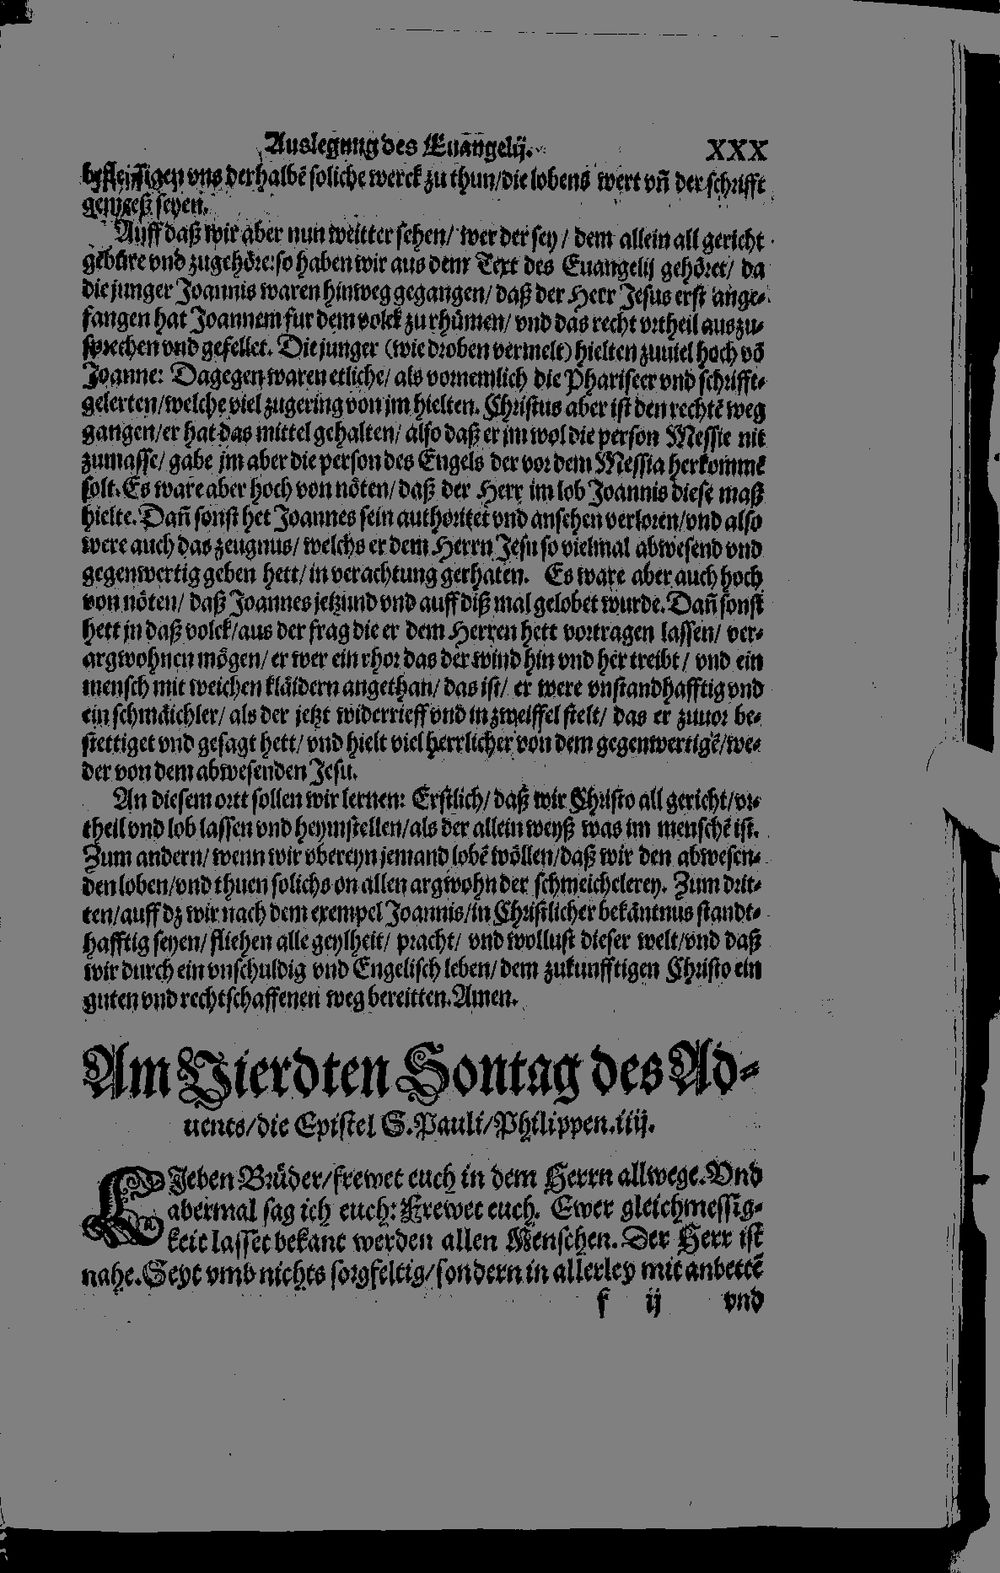 Auslegung des Euangelij. XXX
befleissigen vns derhalbē soliche werck zu thun/die lobens wert vñ der schrifft
gemeß seyen.
Auff daß wir aber nun weitter sehen/ wer der sey/ dem allein all gericht
gebüre vnd zugehöre: so haben wir aus dem Text des Euangelij gehöret/ da
die junger Joannis waren hinweg gegangen/ daß der Herr Jesus erst ange-
fangen hat Joannem fur dem volck zu rhümen/ vnd das recht vrtheil auszu-
sprechen vnd gefellet. Die junger (wie droben vermelt) hielten zuuiel hoch vō
Joanne: Dagegen waren etliche/ als vornemlich die Phariseer vnd schrifft-
gelerten/welche viel zugering von jm hielten. Christus aber ist den rechtē weg
gangen/er hat das mittel gehalten/ also daß er jm wol die person Messie nit
zumasse/ gabe jm aber die person des Engels der vor dem Messia herkommē
solt. Es ware aber hoch von nöten/ daß der Herr im lob Joannis diese maß
hielte. Dañ sonst het Joannes sein authoritet vnd ansehen verloren/vnd also
were auch das zeugnus/ welchs er dem Herrn Jesu so vielmal abwesend vnd
gegenwertig geben hett/ in verachtung gerhaten. Es ware aber auch hoch
von nöten/ daß Joannes jetzund vnd auff diß mal gelobet wurde. Dañ sonst
hett jn daß volck/aus der frag die er dem Herren hett vortragen lassen/ ver-
argwohnen mögen/ er wer ein rhor das der wind hin vnd her treibt/ vnd ein
mensch mit weichen kläidern angethan/ das ist/ er were vnstandhafftig vnd
ein schmäichler/ als der jetzt widerrieff vnd in zweiffel stelt/ das er zuuor be-
stettiget vnd gesagt hett/ vnd hielt viel herrlicher von dem gegenwertigē/we-
der von dem abwesenden Jesu.
An diesem ortt sollen wir lernen: Erstlich/ daß wir Christo all gericht/vr-
theil vnd lob lassen vnd heymstellen/als der allein weyß was im menschē ist.
Zum andern/ wenn wir vbereyn jemand lobē wöllen/daß wir den abwesen-
den loben/vnd thuen solichs on allen argwohn der schmeichelerey. Zum drit-
ten/auff dz wir nach dem exempel Joannis/in Christlicher bekäntnus standt-
hafftig seyen/ fliehen alle geylheit/ pracht/ vnd wollust dieser welt/vnd daß
wir durch ein vnschuldig vnd Engelisch leben/ dem zukunfftigen Christo ein
guten vnd rechtschaffenen weg bereitten. Amen.
Am Vierdten Sontag des Ad-
uents/die Epistel S. Pauli/Philippen. iiij.
LJeben Brüder/frewet euch in dem Herrn allwege. Vnd
abermal sag ich euch: Frewet euch. Ewer gleichmessig-
keit lasset bekant werden allen Menschen. Der Herr ist
nahe. Seyt vmb nichts sorgfeltig/sondern in allerley mit anbettē
f ij vnd